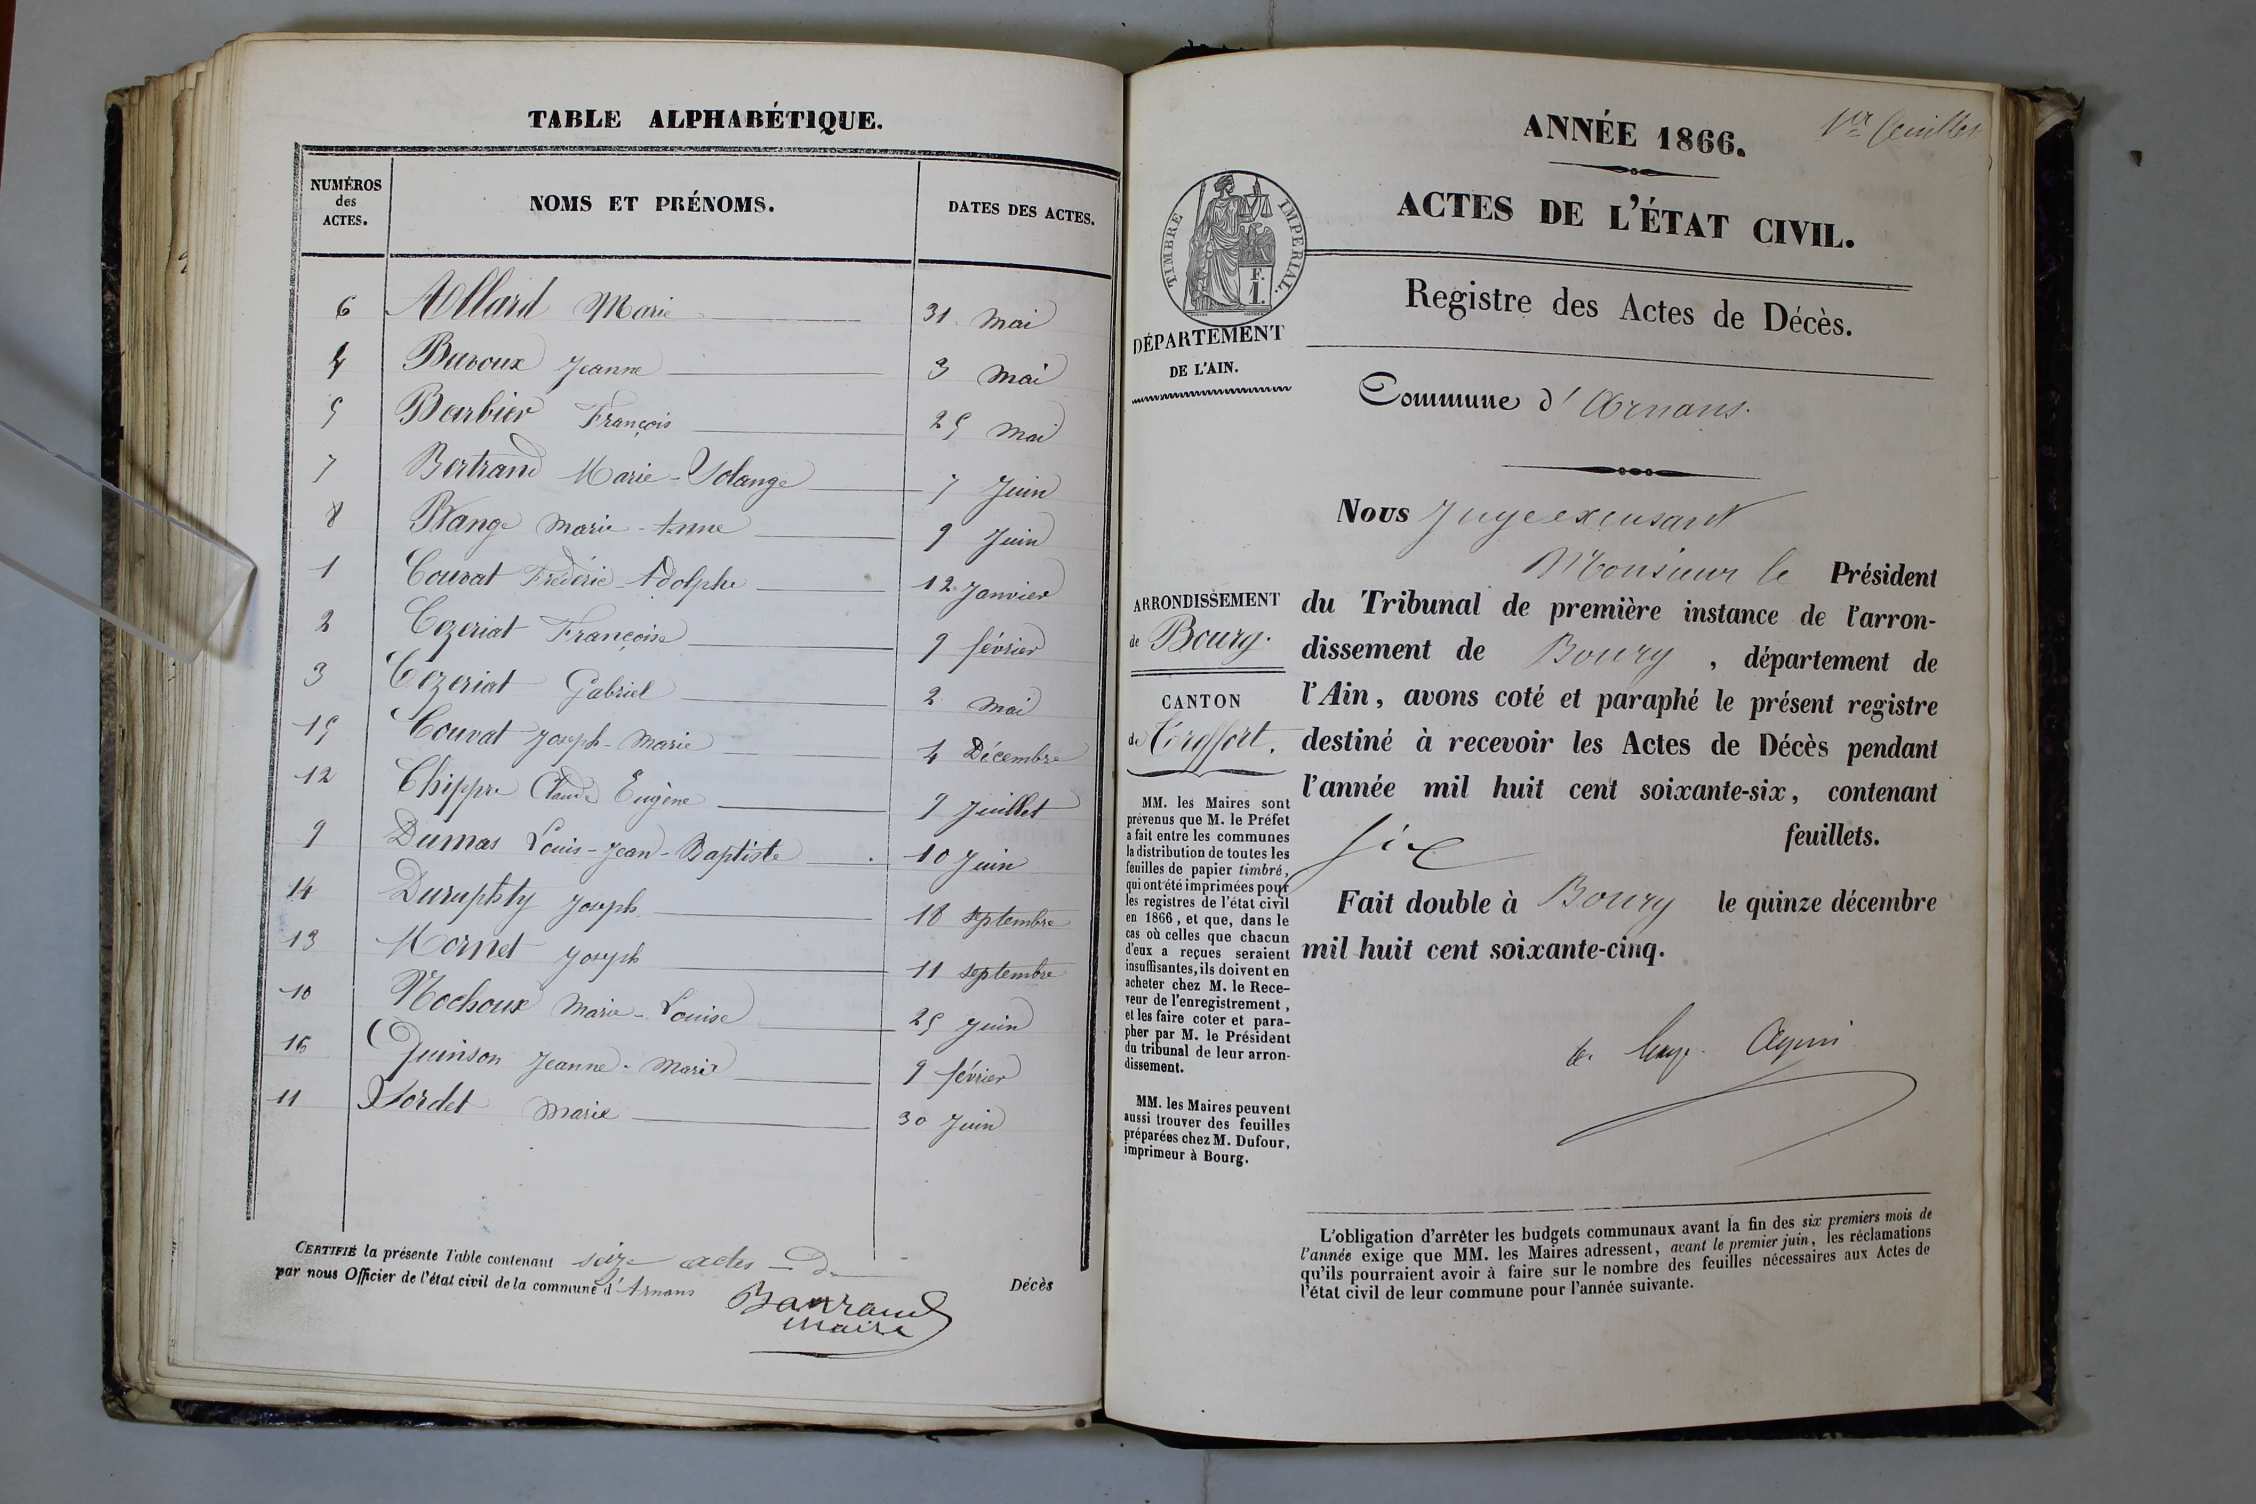 TABLE ALPHABÉTIQUE.
NUMÉROS des ACTES. NOMS ET PRÉNOMS. DATES DES ACTES.
6 Allard Marie 31 Mai
4 Buvoux Jeanne 3 Mai
5 Barbier François 25 Mai
7 Bertrand Marie-Solange 7 Juin
8 Marie-Anne 9 Juin
1 Couvat Frédéric Adolphe 12 Janvier
2 Cezeriat Françoise 9 février
3 Cezeriat Gabriel 2 Mai
15 Couvat Joseph-Marie 4 Décembre
12 Chippre Claude Eugène 9 Juillet
9 Dumas Louis-Jean-Baptiste 10 Juin
14 Joseph 18 septembre
13 Mornet Joseph 11 septembre
10 Nochoux Marie-Louise 25 Juin
16 Quinson Jeanne-Marie 9 février
11 Sordet Marie 30 Juin
CERTIFIÉ la présente Table contenant seize actes de Décès
par nous Officier de l'état civil de la commune d'Arnans
Barraud
maire
1er feuillet
ANNÉE 1866.
ACTES DE L'ÉTAT CIVIL.
TIMBRE IMPÉRIAL.
1 F.
DÉPARTEMENT
DE L'AIN.
Registre des Actes de Décès.
Commune d'Arnans.
ARRONDISSEMENT
de Bourg.
CANTON
de Treffort.
MM. les Maires sont
prévenus que M. le Préfet
a fait entre les communes
la distribution de toutes les
feuilles de papier timbré,
qui ont été imprimées pour
les registres de l'état civil
en 1866, et que, dans le
cas où celles que chacun
d'eux a reçues seraient
insuffisantes, ils doivent en
acheter chez M. le Rece-
veur de l'enregistrement,
et les faire coter et para-
pher par M. le Président
du tribunal de leur arron-
dissement.
MM. les Maires peuvent
aussi trouver des feuilles
préparées chez M. Dufour,
imprimeur à Bourg.
Nous Juge excusant
Monsieur le Président
du Tribunal de première instance de l'arron-
dissement de Bourg, département de
l'Ain, avons coté et paraphé le présent registre
destiné à recevoir les Actes de Décès pendant
l'année mil huit cent soixante-six, contenant
six feuillets.
Fait double à Bourg le quinze décembre
mil huit cent soixante-cinq.
L'obligation d'arrêter les budgets communaux avant la fin des six premiers mois de
l'année exige que MM. les Maires adressent, avant le premier juin, les réclamations
qu'ils pourraient avoir à faire sur le nombre des feuilles nécessaires aux Actes de
l'état civil de leur commune pour l'année suivante.